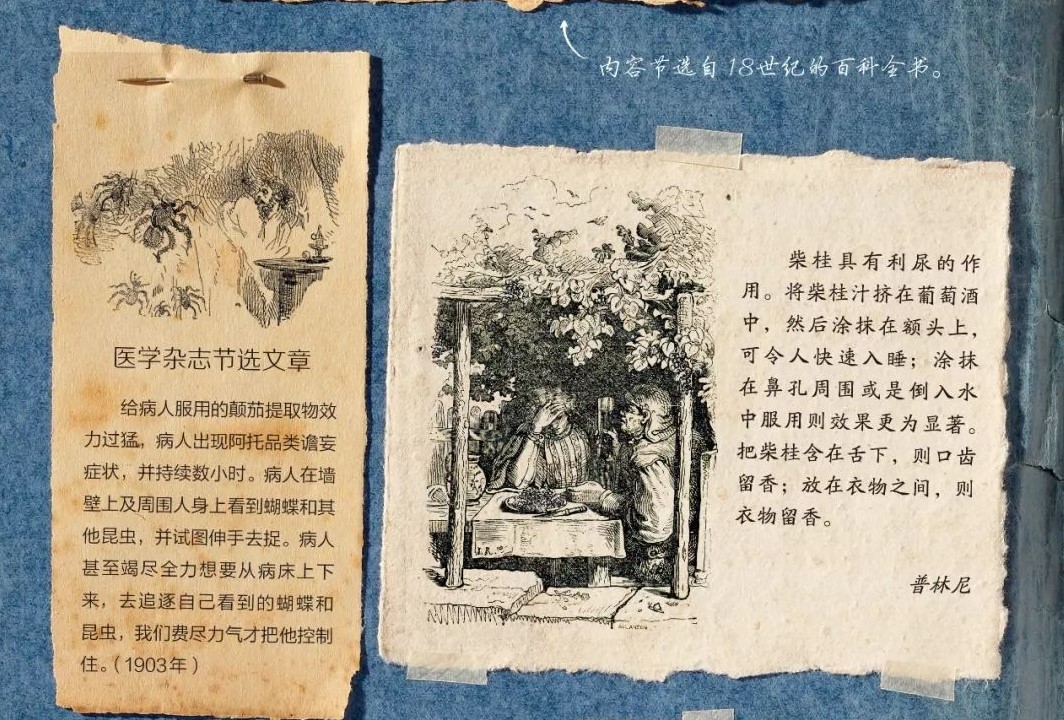 内容节选自18世纪的百科全书。
医学杂志节选文章
给病人服用的颠茄提取物效
力过猛，病人出现阿托品类谵妄
症状，并持续数小时。病人在墙
壁上及周围人身上看到蝴蝶和其
他昆虫，并试图伸手去捉。病人
甚至竭尽全力想要从病床上下
来，去追逐自己看到的蝴蝶和
昆虫，我们费尽力气才把他控制
住。（1903年）
柴桂具有利尿的作
用。将柴桂汁挤在葡萄酒
中，然后涂抹在额头上，
可令人快速入睡；涂抹
在鼻孔周围或是倒入水
中服用则效果更为显著。
把柴桂含在舌下，则口齿
留香；放在衣物之间，则
衣物留香。
普林尼